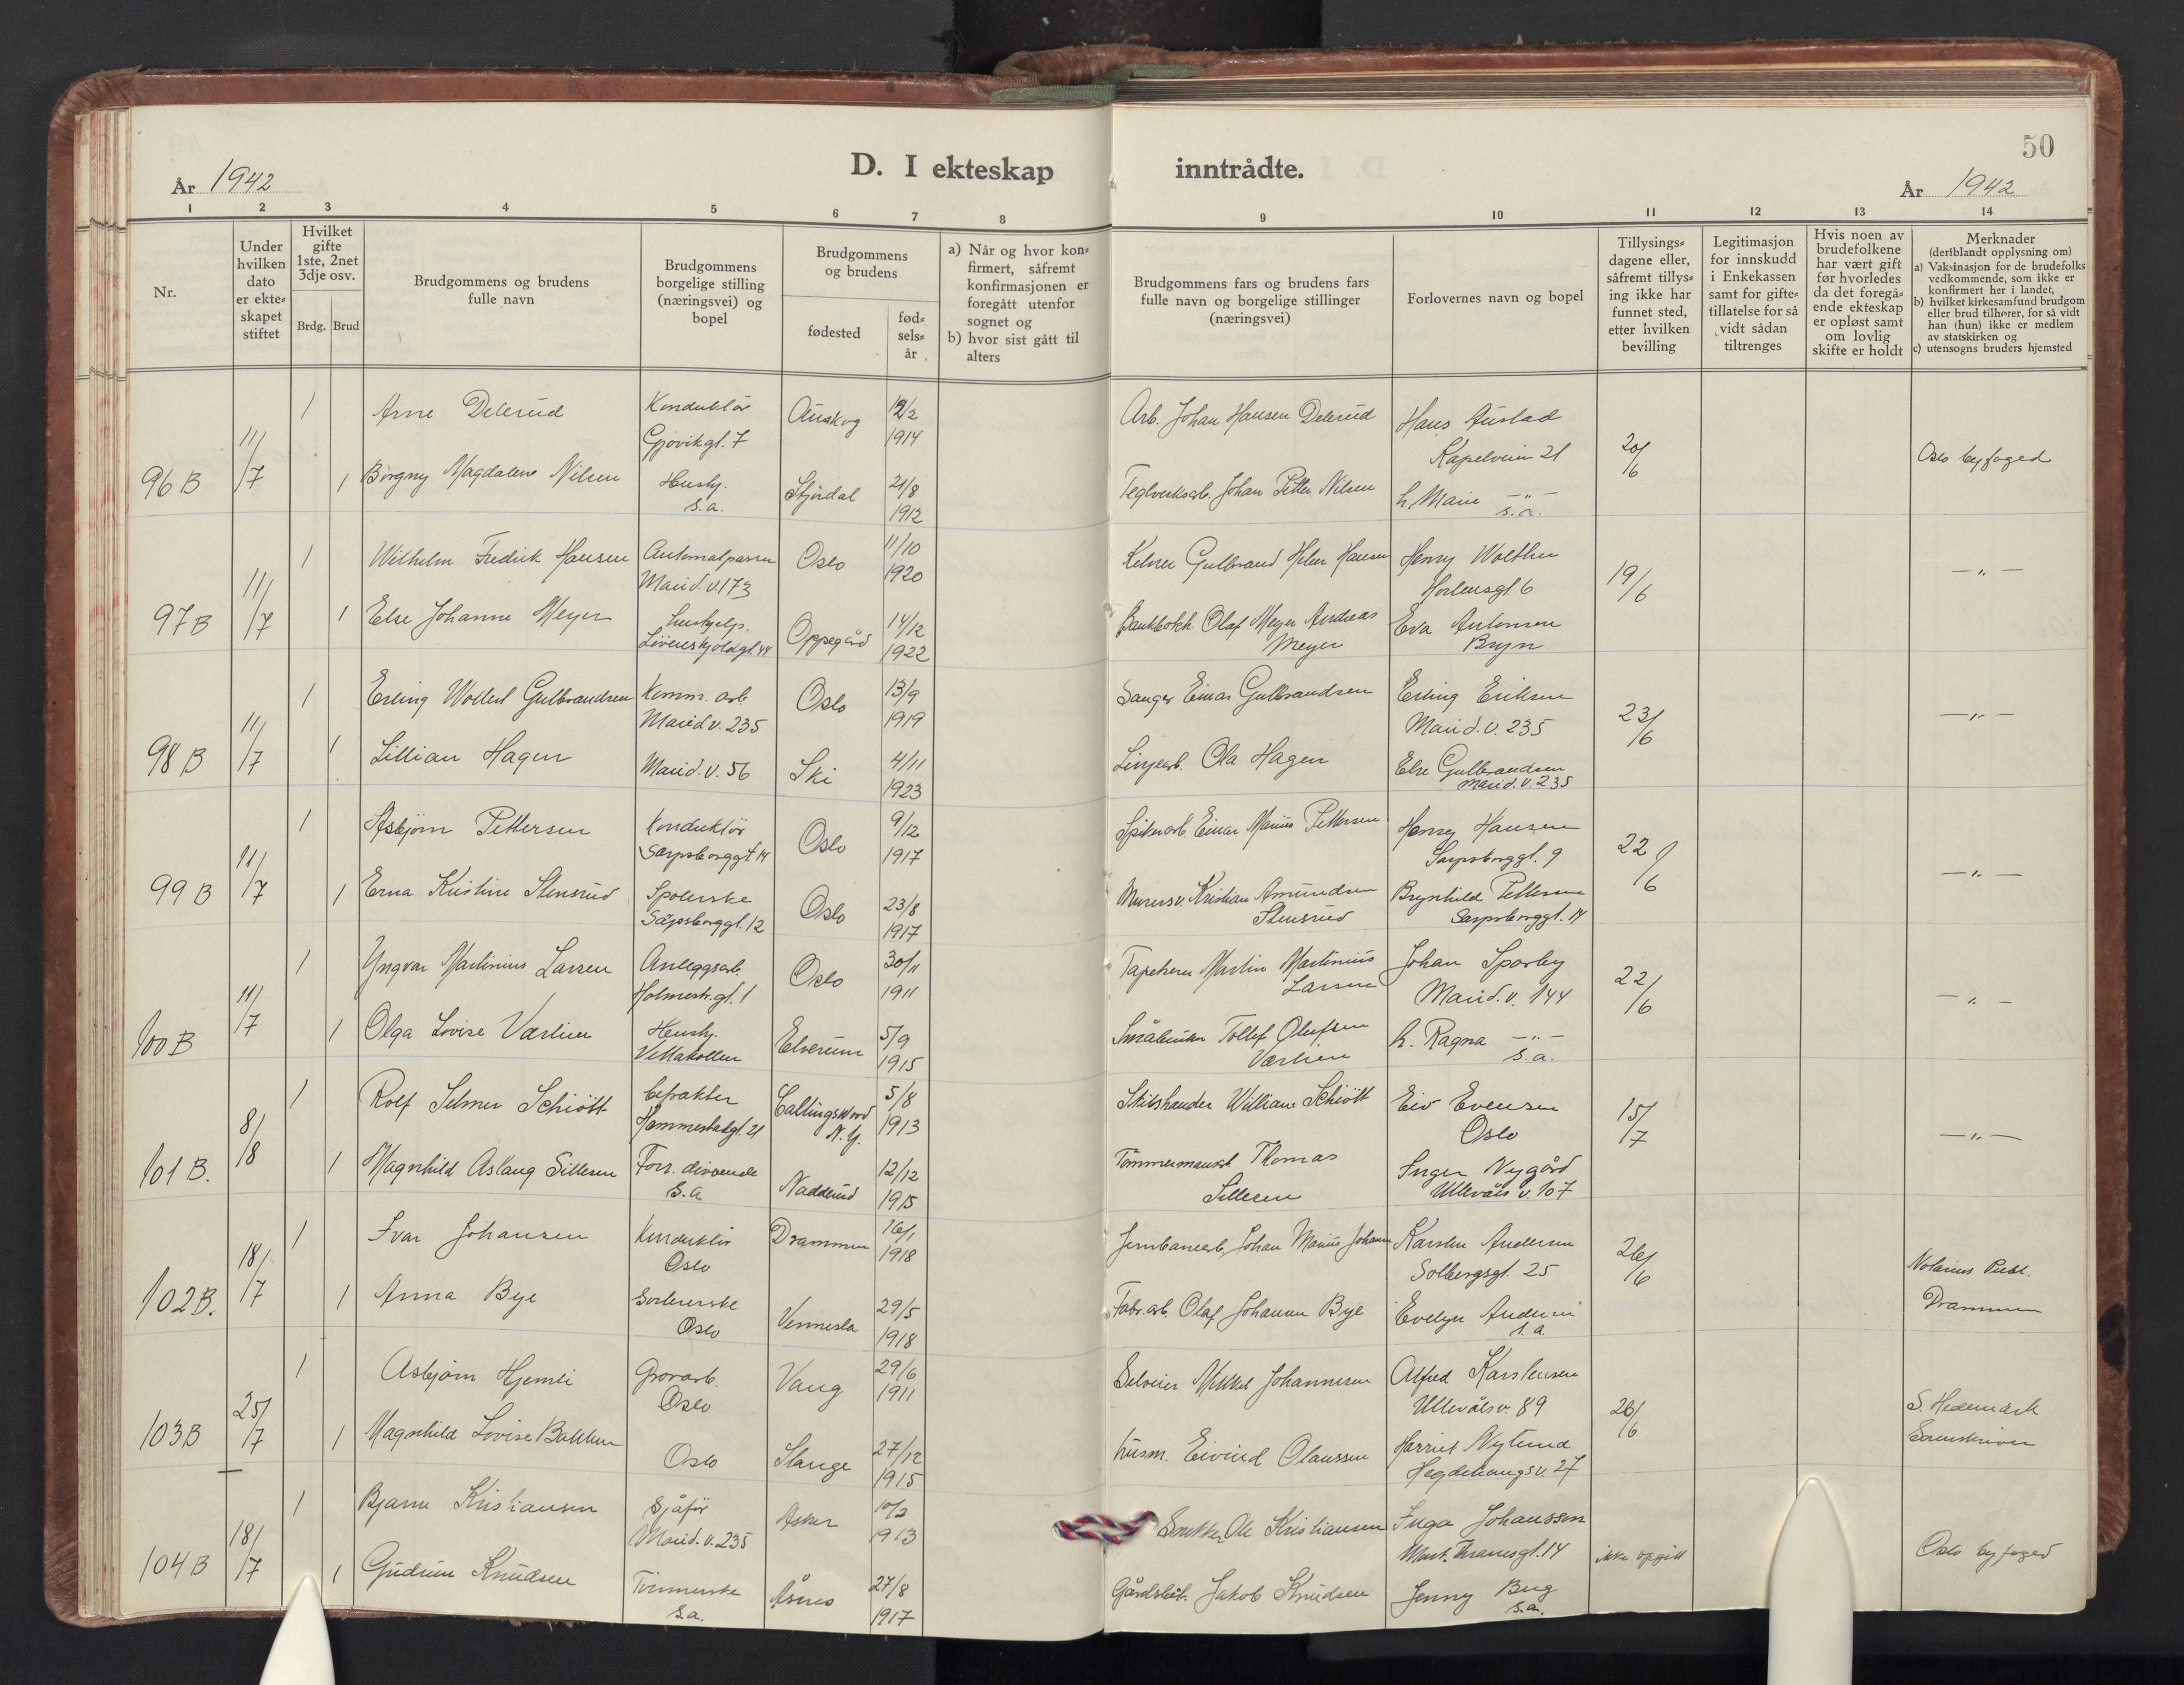 50
D. I ekteskap inntrådte.
År 1942
År 1942
1 2 3 4 5 6 7 8 9 10 11 12 13 14
Nr.
Under hvilken dato er ekte-skapet stiftet
Hvilket gifte 1ste, 2net 3dje osv.
Brdg. Brud
Brudgommens og brudens fulle navn
Brudgommens borgelige stilling (næringsvei) og bopel
Brudgommens og brudens
fødested
fød-sels-år
a) Når og hvor kon-firmert, såfremt konfirmasjonen er foregått utenfor sognet og
b) hvor sist gått til alters
Brudgommens fars og brudens fars fulle navn og borgelige stillinger (næringsvei)
Forlovernes navn og bopel
Tillysings-dagene eller, såfremt tillys-ing ikke har funnet sted, etter hvilken bevilling
Legitimasjon for innskudd i Enkekassen samt for gifte-tillatelse for så vidt sådan tiltrenges
Hvis noen av brudefolkene har vært gift før hvorledes da det foregå-ende ekteskap er opløst samt om lovlig skifte er holdt
Merknader (deriblandt opplysning om)
a) Vaksinasjon for de brudefolks vedkommende, som ikke er konfirmert her i landet,
b) hvilket kirkesamfund brudgom eller brud tilhører, for så vidt han (hun) ikke er medlem av statskirken og
c) utensogns bruders hjemsted
1 Arne Delerud Konduktör Auskog 12/2 Arb. Johan Hansen Delerud Hans Austad
Gjøvikgt. 7 1914 Kapelveien 21
96 B 11/7 1 Borgny Magdalene Nilsen Husbg. Stjördal 21/8 Teglverksarb. Johan Petter Nilsen h. Marie —„— 20/6 Oslo byfoged
s.a. 1912 s.a.
1 Wilhelm Fredrik Hansen Automatpasser Oslo 11/10 Kelner Gulbrand Hansen Henry Wolther
Marid.v. 173 1920 Horlensgt 6
97 B 11/7 1 Else Johanne Meyer hushjelp. Oppegård 14/12 Bankbokh. Olaf Meyer Andreas Eva Antonsen 19/6 —„—
Lövenskjoldgt. 44 1922 Meyer Bryn
1 Erling Gulbrandsen Komm. arb. Oslo 13/9 Sanger Einar Gulbrandsen Erling Eriksen
Marid v. 235 1919 Marid.v. 235
98 B 11/7 1 Lillian Hagen Marid.v. 56 Ski 4/11 Linjearb. Ola Hagen Else Gulbrandsen 23/6 —„—
1923 Marid.v. 235
1 Asbjörn Pettersen Konduktör Oslo 9/12 Spikerarb. Einar Marius Pettersen Henry Hansen
Sarpsborggt 14 1917 Sarpsborggt. 9
99 B 11/7 1 Erna Kristine Stensrud Spolerske Oslo 23/8 Murersv. Kristian Amundsen Brynhild Pettersen 22/6 —„—
Sarpsborggt. 12 1917 Stensrud Sarpsborggt. 14
1 Yngvar Martinius Larsen Anleggsarb. Oslo 30/11 Tapetserer Martin Martinius Johan Sparby
Holmestr.gt. 1 1911 Larsen Marid.v. 144
100 B 11/7 1 Olga Lovise Værlien Husbg. Elverum 5/9 Småbruker Tollef Olufsen h. Ragna —„— 22/6 —„—
Vettakollen 1915 Værlien s.a.
1 Rolf Selmer Schiött befrakter Callingswood 5/8 Skibshandler William Schiött Eiv Evensen
Hammerstadgt. 21 N.Y. 1913 Oslo
101 B. 8/8 1 Magnhild Aslaug Sillesen Forr. drivende Nadderud 12/12 Tömmermannsf. Thomas Inger Nygård 15/7 —„—
s.a 1915 Sillesen Ullevåls v. 107
1 Ivar Johansen Konduktör Drammen 16/1 Jernbanearb. Johan Marius Johansen Karsten Andersen
Oslo 1918 Solbergsgt. 25
102 B. 18/7 1 Anna Bye Sorterske Vennesla 29/5 Fabr.arb. Olaf Johannes Bye Evelyn Andersen 26/6 Notarius Publ.
Oslo 1918 s.a Drammen
1 Asbjörn Hjemli Grovarb. Vang 29/6 Selveier Mikkel Johannesen Alfred Karstensen
Oslo 1911 Ullevålsv. 89
103 B 25/7 1 Magnhild Lovise Bakken Oslo Stange 27/12 husm. Eivind Olaussen Harriet Nylund 26/6 S. Hedemark
1915 Hegdehaugsv. 27 Sorenskriver
1 Bjarne Kristiansen Sjåför Asker 10/2 Snekker Ole Kristiansen Inga Johansson
Marid.v. 235 1913 Mark. Thranesgt. 14
104 B 18/7 1 Gudrun Knudsen Tvinnerske Åsnes 27/8 Gårdsbest. Jakob Knudsen Jenny Bug ikke opgitt Oslo byfoged
s.a. 1917 s.a.